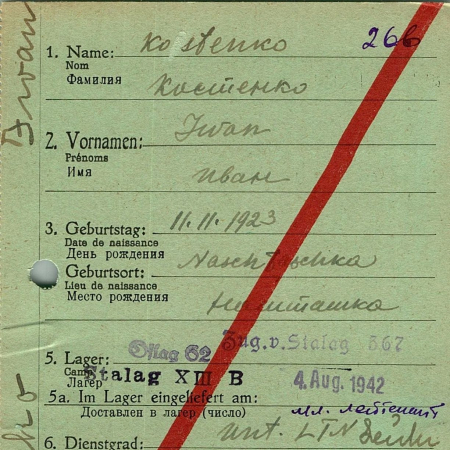 266
1. Name: Kostenko
Nom
Фамилия
Костенко
2. Vornamen: Iwan
Prénoms
Имя
иван
3. Geburtstag: 11.11.1923
Date de naissance
День рождения
Geburtsort:
Lieu de naissance
Место рождения
Oflag 62 Zug. v. Stalag 367
5. Lager: Stalag XIII B
Camp
Лагерь
4. Aug. 1942
5a. Im Lager eingeliefert am:
Доставлен в лагерь (число)
мл. лейтенант
6. Dienstgrad: Unt. LTN
Iwan